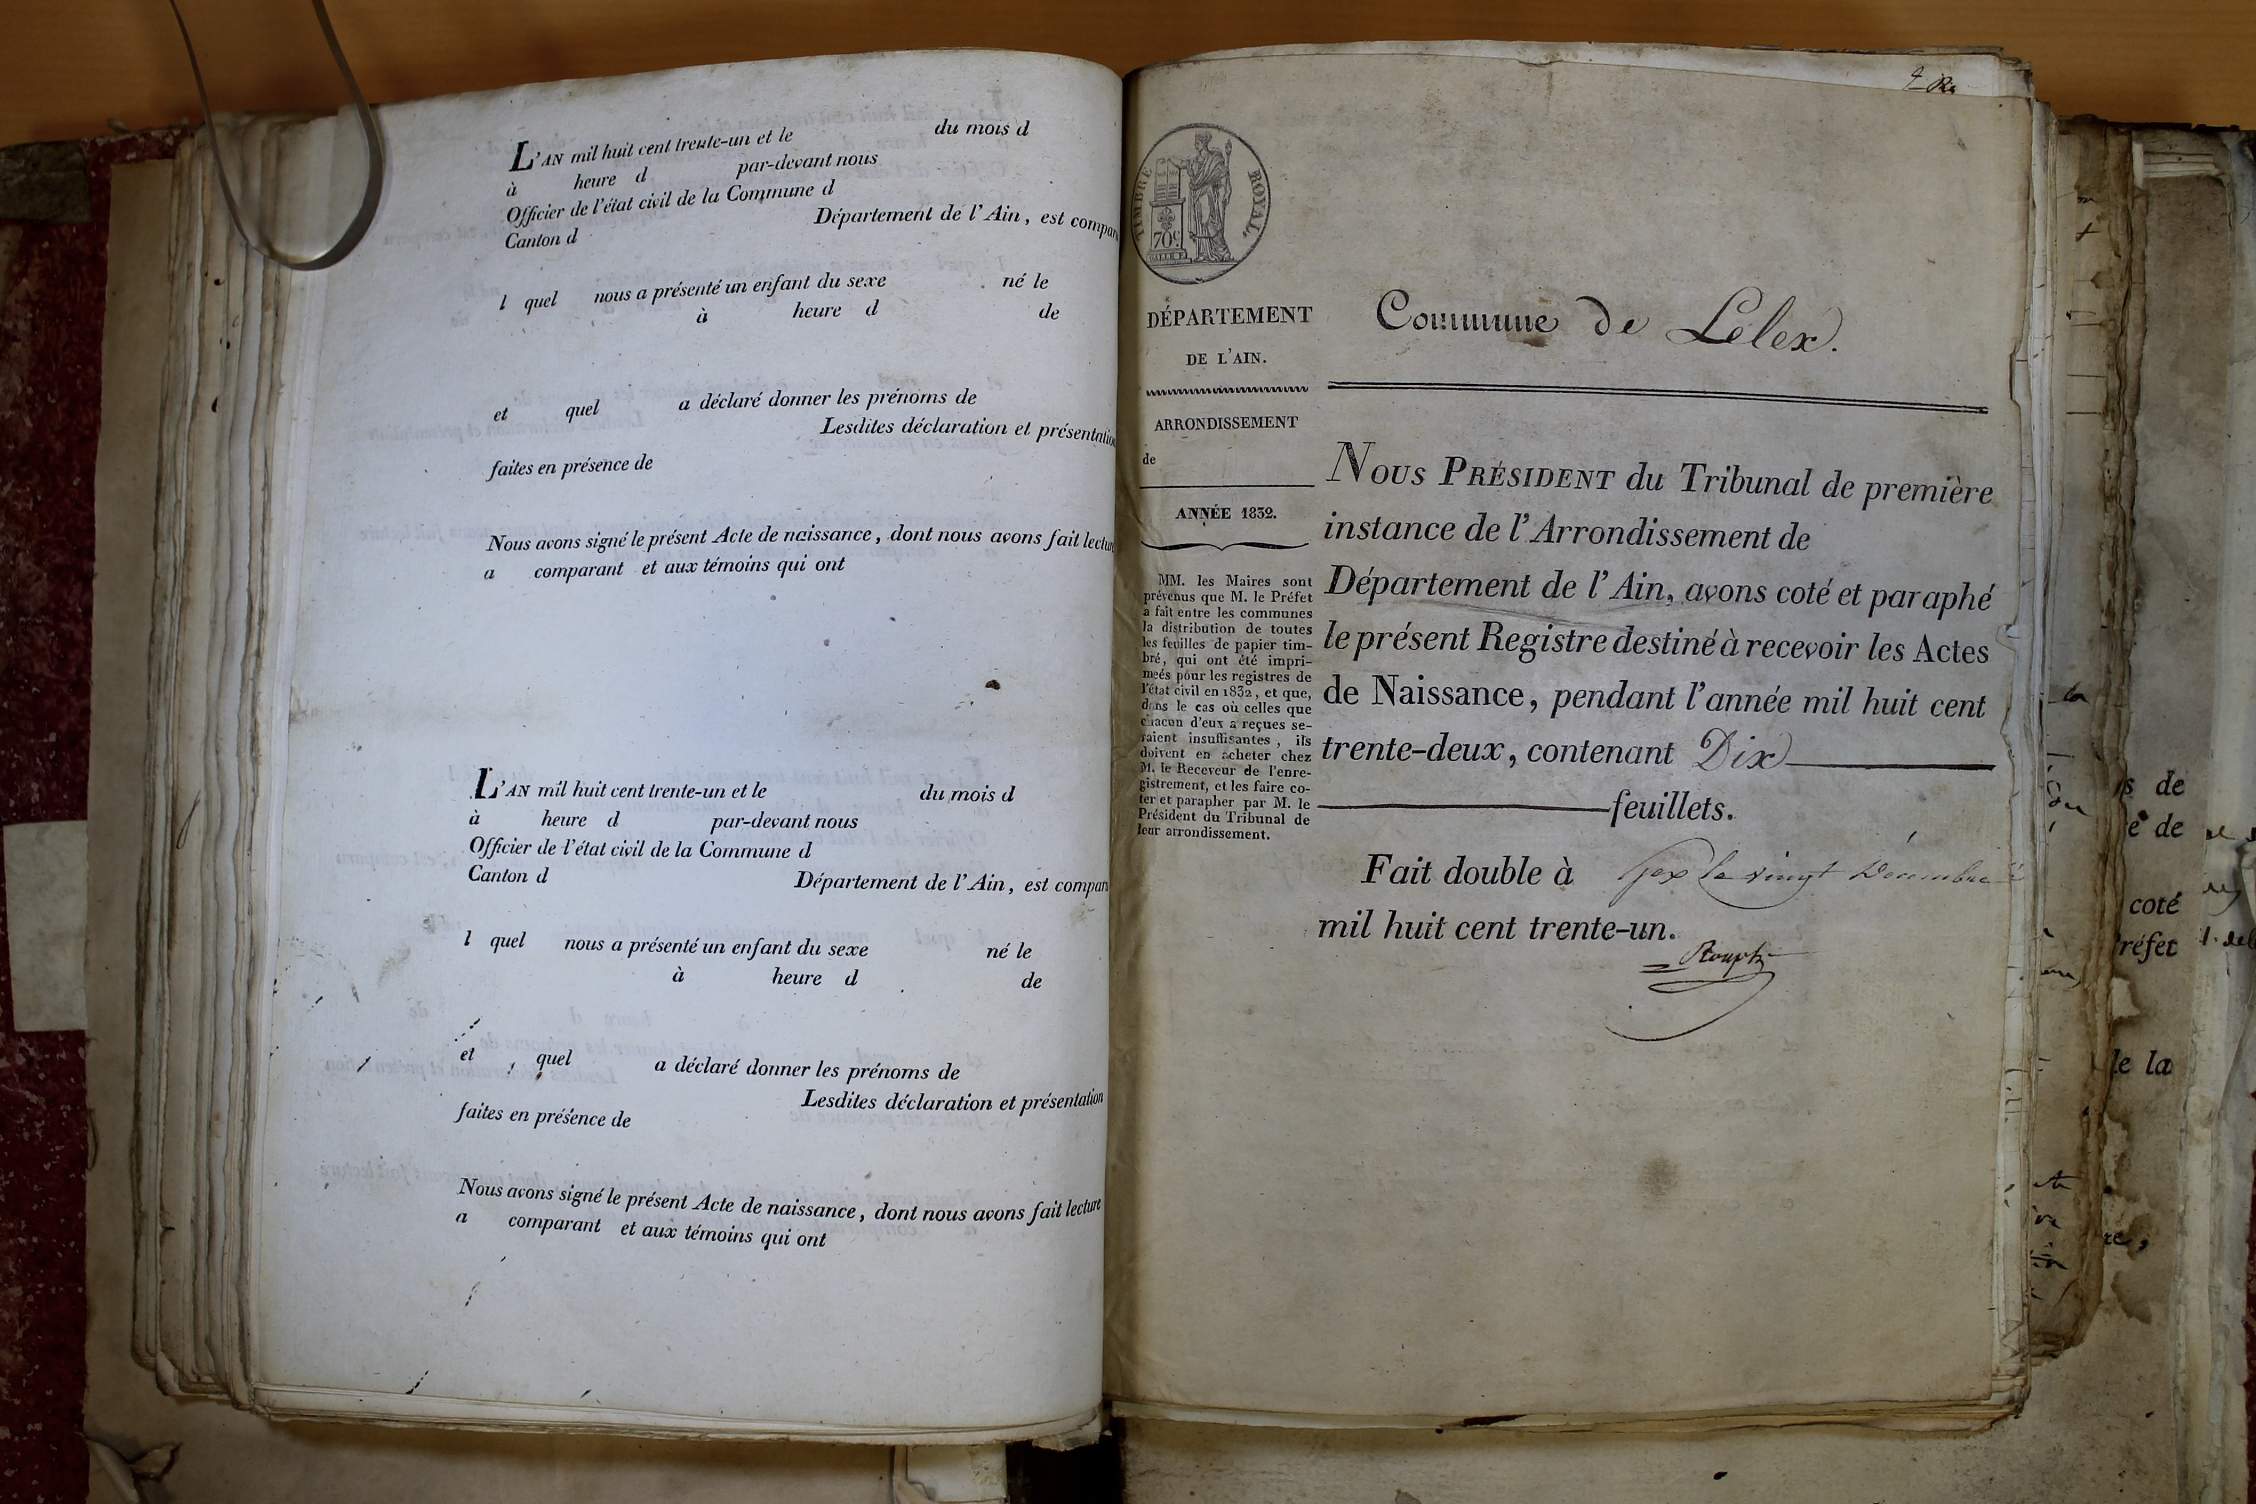 L'AN mil huit cent trente-un et le du mois d
à heure d par-devant nous
Officier de l'état civil de la Commune d
Canton d Département de l'Ain, est compar
l quel nous a présenté un enfant du sexe né le
à heure d de
et quel a déclaré donner les prénoms de
Lesdites déclaration et présentation
faites en présence de
Nous avons signé le présent Acte de naissance, dont nous avons fait lecture
a comparant et aux témoins qui ont
L'AN mil huit cent trente-un et le du mois d
à heure d par-devant nous
Officier de l'état civil de la Commune d
Canton d Département de l'Ain, est compar
l quel nous a présenté un enfant du sexe né le
à heure d de
et quel a déclaré donner les prénoms de
Lesdites déclaration et présentation
faites en présence de
Nous avons signé le présent Acte de naissance, dont nous avons fait lecture
a comparant et aux témoins qui ont
TIMBRE ROYAL.
70 c.
DÉPARTEMENT
DE L'AIN.
ARRONDISSEMENT
de
ANNÉE 1832.
MM. les Maires sont
prévenus que M. le Préfet
a fait entre les communes
la distribution de toutes
les feuilles de papier tim-
bré, qui ont été impri-
meés pour les registres de
l'état civil en 1832, et que,
dans le cas où celles que
chacun d'eux a reçues se-
raient insuffisantes, ils
doivent en acheter chez
M. le Receveur de l'enre-
gistrement, et les faire co-
ter et parapher par M. le
Président du Tribunal de
leur arrondissement.
Commune de Lélex.
NOUS PRÉSIDENT du Tribunal de première
instance de l'Arrondissement de
Département de l'Ain, avons coté et paraphé
le présent Registre destiné à recevoir les Actes
de Naissance, pendant l'année mil huit cent
trente-deux, contenant Dix
feuillets.
Fait double à Gex le vingt Décembre
mil huit cent trente-un.
de
de
coté
réfet
de la